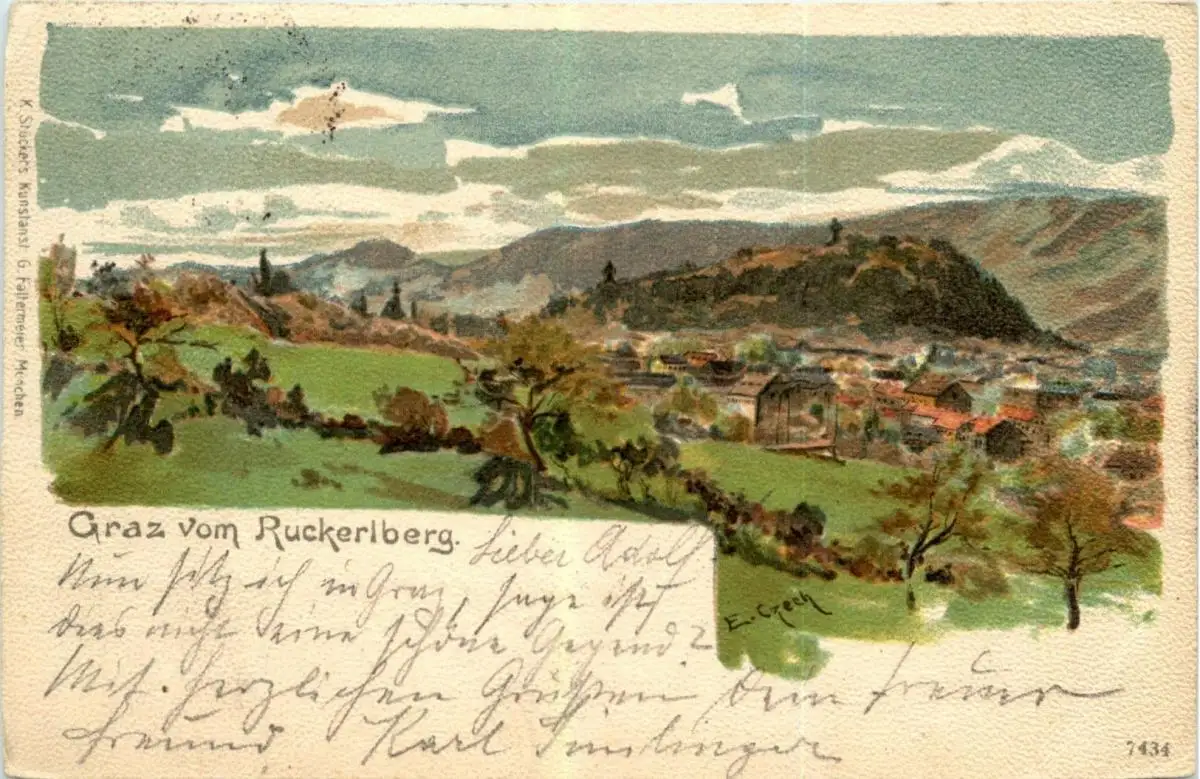 K. Stücker's Kunstanst. G. Fallermeier, München.
Graz vom Ruckerlberg.
Lieber Adolf
Nun sitz ich in Graz, sage ist
dees nicht eine schöne Gegend?
Mit herzlichen Grüßen Dein treuer
Freund Karl
E. Czech
7434